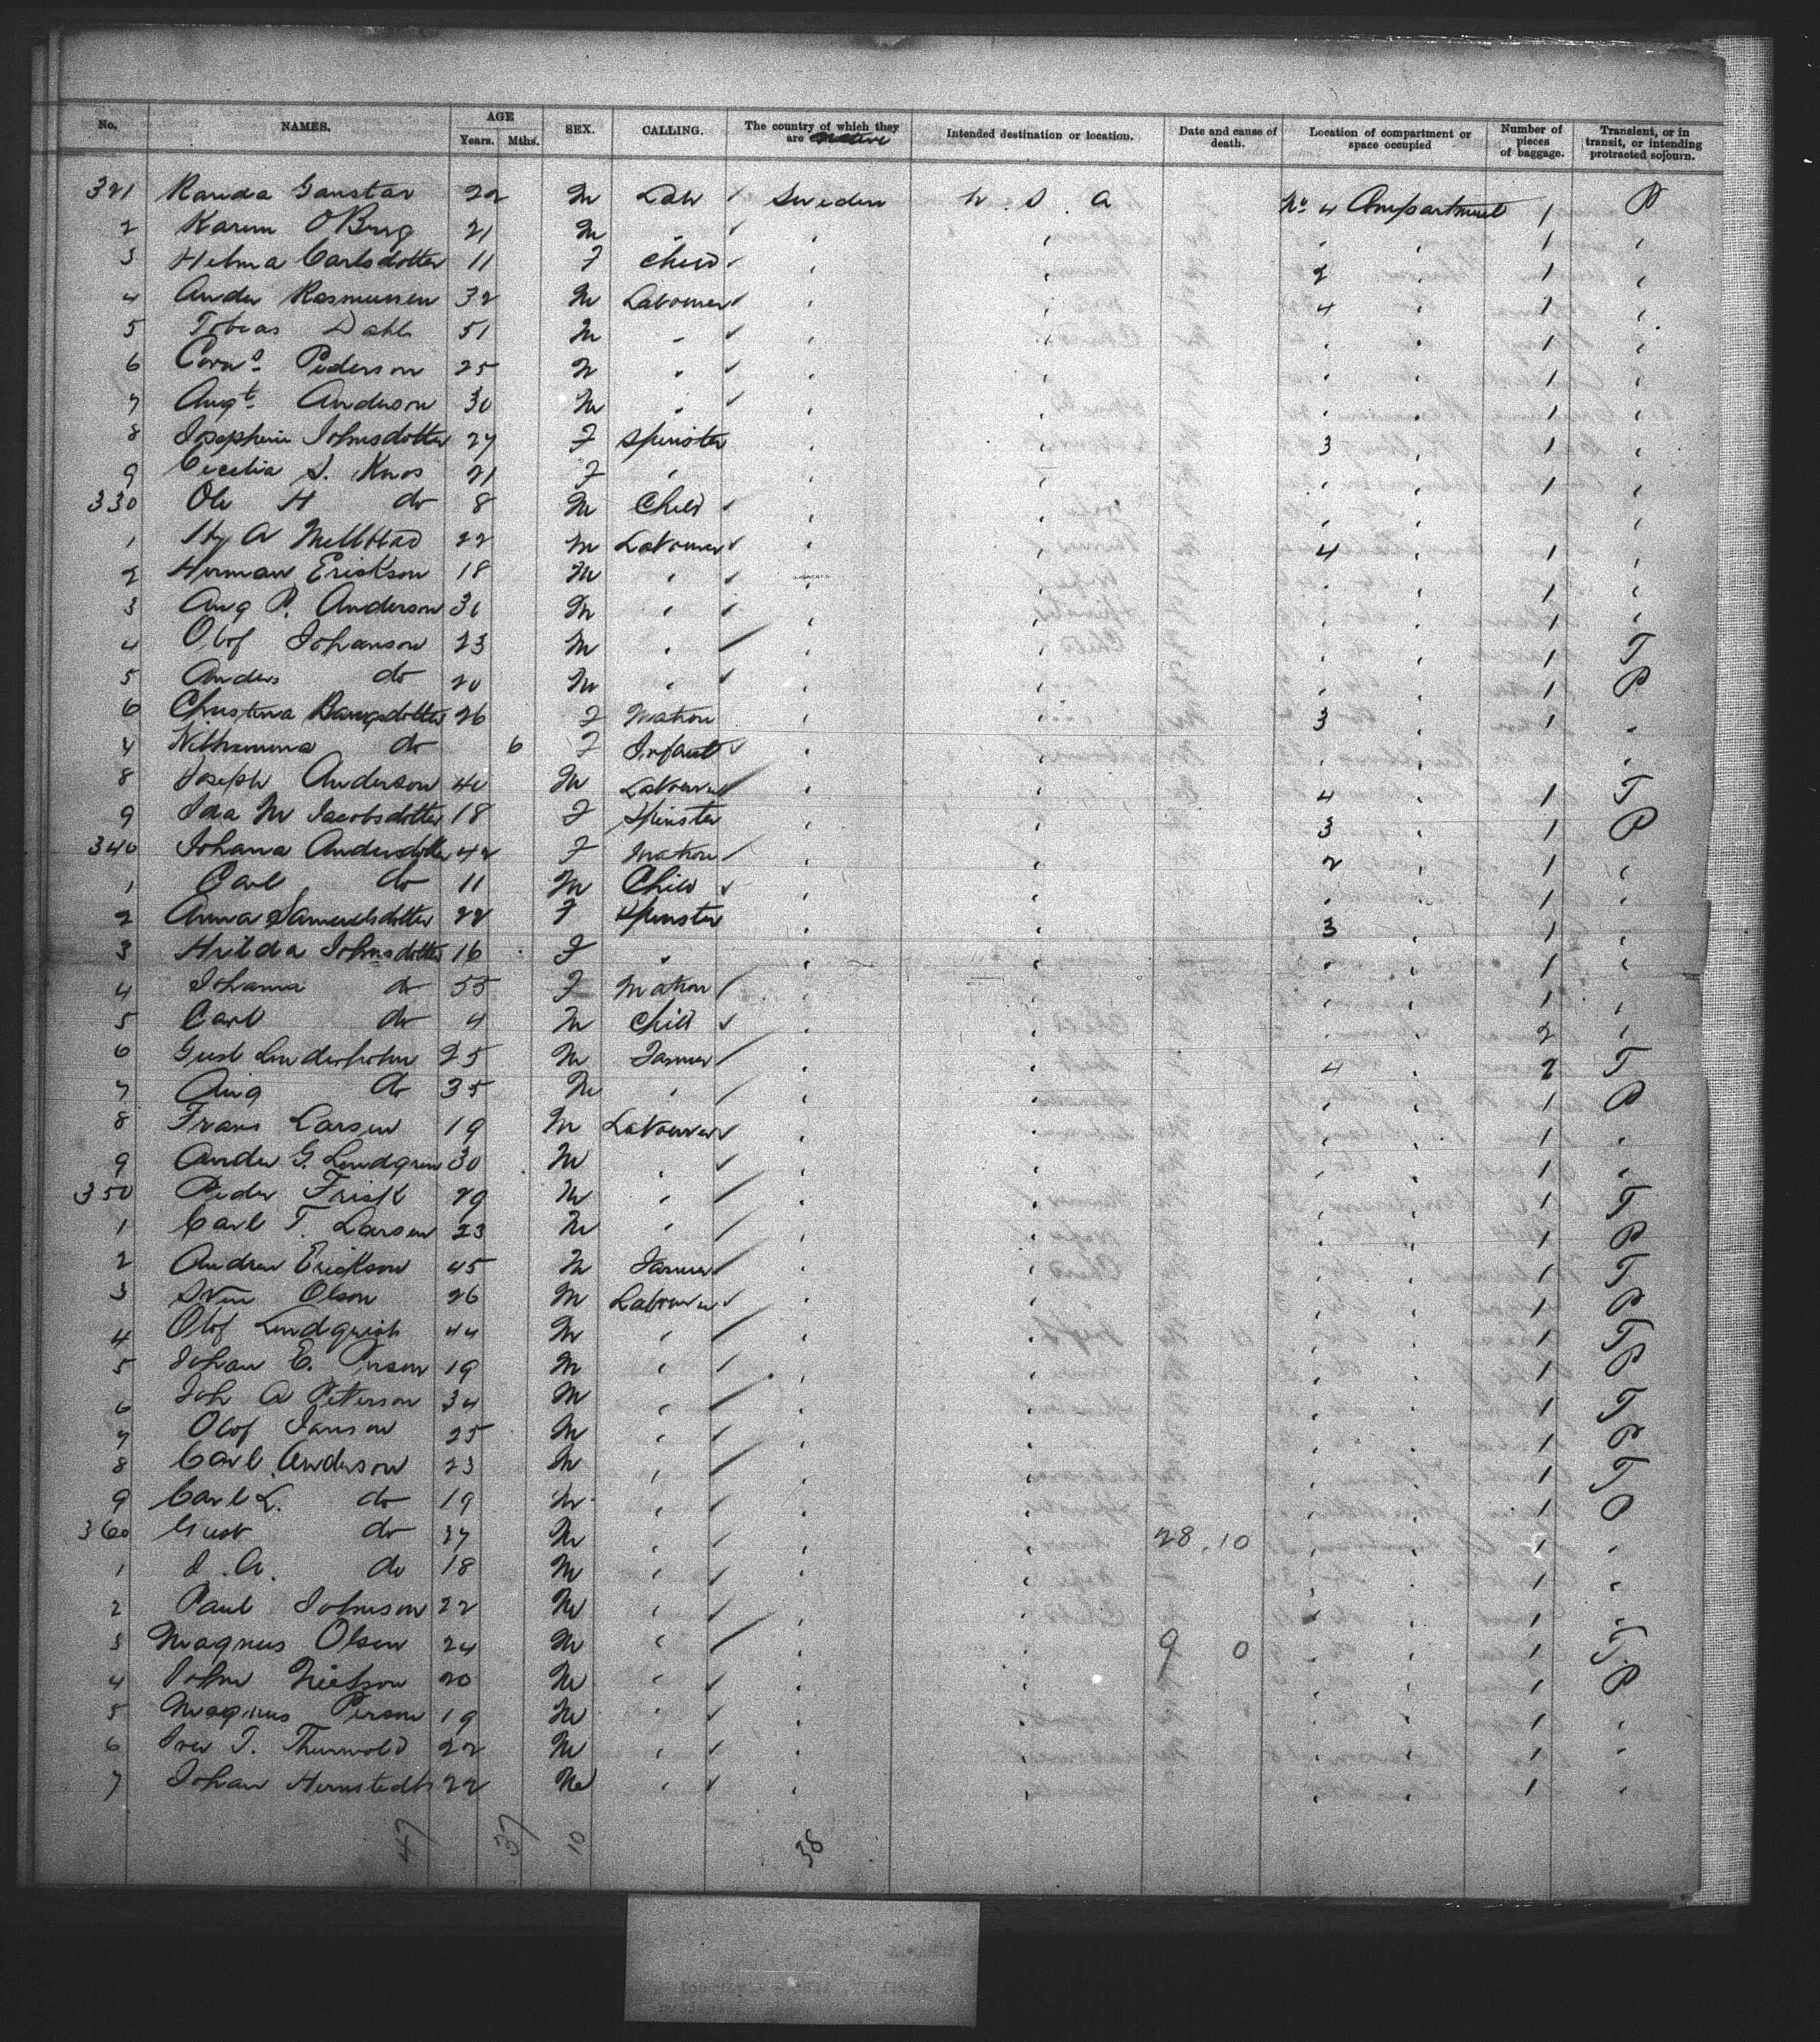 No. NAMES. AGE Years. Mths. SEX. CALLING. The country of which they are native Intended destination or location. Date and cause of death. Location of compartment or space occupied Number of pieces of baggage. Transient, or in transit, or intending protracted sojourn.
321 Gaustav 22 M Lab Sweden U. S. A No 4 Compartment 1 P
2 Karen OBerg 21 M " " " " " 1 "
3 Helma Carlsdotter 11 F Child " " 2 " 1 "
4 Ander Rasmussen 32 M Labourer " " 4 " 1 "
5 Tobias Dahl 51 M " " " " " 1 "
6 Corns Pederson 25 M " " " " " 1 "
7 Augt. Anderson 30 M " " " " " 1 "
8 Josephine Johnsdotter 27 F Spinster " " 3 " 1 "
9 Cecelia S. Knos 21 F " " " " " 1 "
330 Ole H do 8 M Child " " " " "
1 Hy A Mellstad 22 M Labourer " " 4 " 1 "
2 Herman Erickson 18 M " " " " " 1 "
3 Aug P. Anderson 31 M " " " " " 1 "
4 Olof Johanson 23 M " " " " " 1 T
5 Anders do 20 M " " " " " 1 P
6 Christina Bangsdotter 26 F Matron " " 3 " 1 "
7 Wilhemina do 6 F Infant " " " " "
8 Joseph Anderson 40 M Labourer " " 4 " 1 T
9 Ida M Jacobsdotter 18 F Spinster " " 3 " 1 P
340 Johana Andersdotter 42 F Matron " " 2 " 1 "
1 Carl do 11 M Child " " " " 1 "
2 Anna Samuelsdotter 22 F Spinster " " 3 " 1 "
3 Hulda Johnsdotter 16 F " " " " " 1 "
4 Johanna do 55 F Matron " " " " 1 "
5 Carl do 4 M Child " " " " 2 "
6 Gust Linderholm 25 M Farmer " " 4 " 2 T
7 Aug do 35 M " " " " " 1 P
8 Frans Larsen 19 M Labourer " " " " 1 "
9 Ander G. Lundgren 30 M " " " " " 1 "
350 Peder Frisk 29 M " " " " " 1 T
1 Carl T. Larsen 23 M " " " " " 1 P
2 Andrew Erickson 45 M Farmer " " " " 1 T
3 Sven Olson 26 M Labourer " " " " 1 P
4 Olof Lindquist 44 M " " " " " 1 T
5 Johan E. Person 19 M " " " " " 1 P
6 Joh A Peterson 34 M " " " " " 1 T
7 Olof Janson 25 M " " " " " 1 P
8 Carl Anderson 23 M " " " " " 1 T
9 Carl L. do 19 M " " " " " 1 P
360 Gust do 37 M " " " 28.10 " " 1 "
1 J. A. do 18 M " " " " " 1 "
2 Paul Johnson 22 M " " " " " 1 "
3 Magnus Olsen 24 M " " " 9 0 " " 1 T.
4 John Nielson 20 M " " " " " 1 P
5 Magnus Person 19 M " " " " " 1 "
6 T. Thunwold 22 M " " " " " 1 "
7 Johan Hernstedt 22 M " " " " " 1 "
47 37 10 38